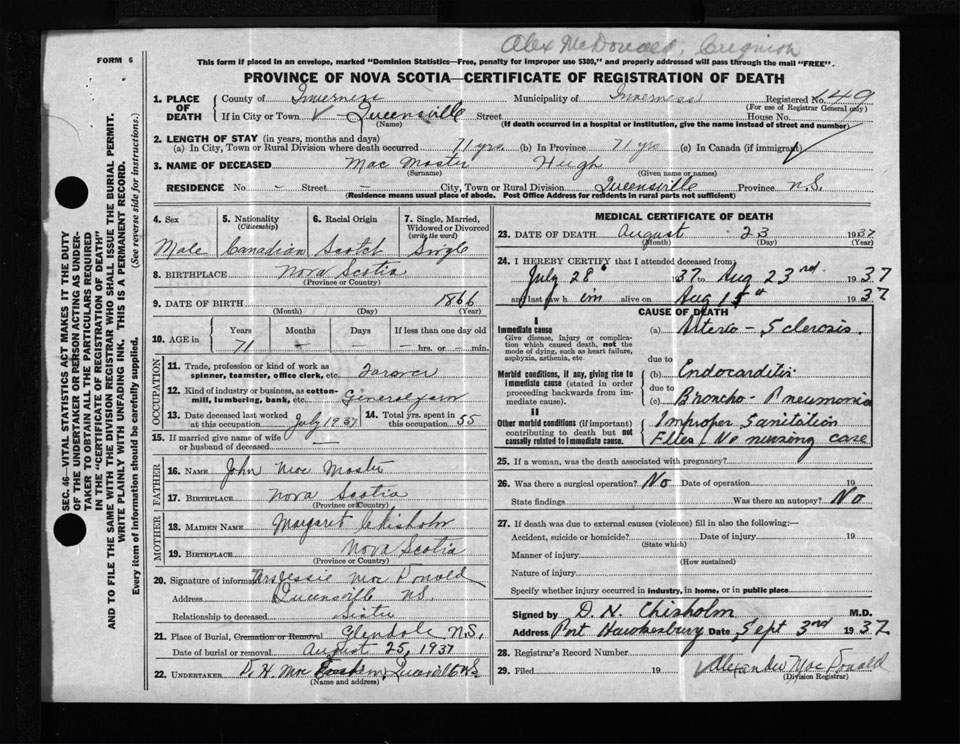 Alex McDonald,
FORM 6
This form if placed in an envelope, marked "Dominion Statistics—Free, penalty for improper use $300," and properly addressed will pass through the mail "FREE".
PROVINCE OF NOVA SCOTIA—CERTIFICATE OF REGISTRATION OF DEATH
1. PLACE OF DEATH County of Inverness Municipality of Inverness Registered No. 149
(For use of Registrar General only)
If in City or Town Queensville Street House No.
(Name) (If death occurred in a hospital or institution, give the name instead of street and number)
2. LENGTH OF STAY (in years, months and days)
(a) In City, Town or Rural Division where death occurred 71 yrs (b) In Province 71 yrs (c) In Canada (if immigrant)
3. NAME OF DECEASED Mac Master Hugh
(Surname) (Given name or names)
RESIDENCE No. - Street - City, Town or Rural Division Queensville Province N.S.
(Residence means usual place of abode. Post Office Address for residents in rural parts not sufficient)
4. Sex 5. Nationality (Citizenship) 6. Racial Origin 7. Single, Married, Widowed or Divorced (write the word)
Male Canadian Scotch Single
8. BIRTHPLACE Nova Scotia
(Province or Country)
9. DATE OF BIRTH 1866
(Month) (Day) (Year)
10. AGE in Years Months Days If less than one day old
71 - - - hrs. or - min.
OCCUPATION
11. Trade, profession or kind of work as spinner, teamster, office clerk, etc. Farmer
12. Kind of industry or business, as cotton-mill, lumbering, bank, etc. General farm
13. Date deceased last worked at this occupation July 1937 14. Total yrs. spent in this occupation 55
15. If married give name of wife or husband of deceased —
FATHER
16. NAME John Mac Master
17. BIRTHPLACE Nova Scotia
(Province or Country)
MOTHER
18. MAIDEN NAME Margaret Chisholm
19. BIRTHPLACE Nova Scotia
(Province or Country)
20. Signature of informant Mrs Jessie Mac Donald
Address Queensville N.S.
Relationship to deceased Sister
21. Place of Burial, Cremation or Removal Glendale N.S.
Date of burial or removal August 25, 1937
22. UNDERTAKER D. H. Mac
(Name and address)
MEDICAL CERTIFICATE OF DEATH
23. DATE OF DEATH August 23 1937
(Month) (Day) (Year)
24. I HEREBY CERTIFY that I attended deceased from
July 28th 1937 to Aug 23rd 1937
and last saw him alive on Aug 15th 1937
CAUSE OF DEATH
I
Immediate cause (a) Arterio-Sclerosis
Give disease, injury or complication which caused death, not the mode of dying, such as heart failure, asphyxia, asthenia, etc.
due to
Morbid conditions, if any, giving rise to immediate cause (stated in order proceeding backwards from immediate cause). (b) Endocarditis
due to
(c) Broncho-Pneumonia
II
Other morbid conditions (if important) contributing to death but not causally related to immediate cause. Improper Sanitation
Flies. No nursing care
25. If a woman, was the death associated with pregnancy?
26. Was there a surgical operation? No Date of operation 19
State findings Was there an autopsy? No
27. If death was due to external causes (violence) fill in also the following:—
Accident, suicide or homicide? Date of injury 19
(State which)
Manner of injury
(How sustained)
Nature of injury
Specify whether injury occurred in industry, in home, or in public place
Signed by D. N. Chisholm M.D.
Address Port Hawkesbury Date Sept 3rd 1937
28. Registrar's Record Number
29. Filed 19 Alexander Mac Donald
(Division Registrar)
SEC. 46—VITAL STATISTICS ACT MAKES IT THE DUTY
OF THE UNDERTAKER OR PERSON ACTING AS UNDER-
TAKER TO OBTAIN ALL THE PARTICULARS REQUIRED
IN THE "CERTIFICATE OF REGISTRATION OF DEATH"
AND TO FILE THE SAME WITH THE DIVISION REGISTRAR WHO SHALL ISSUE THE BURIAL PERMIT.
WRITE PLAINLY WITH UNFADING INK. THIS IS A PERMANENT RECORD.
Every item of information should be carefully supplied. (See reverse side for instructions.)